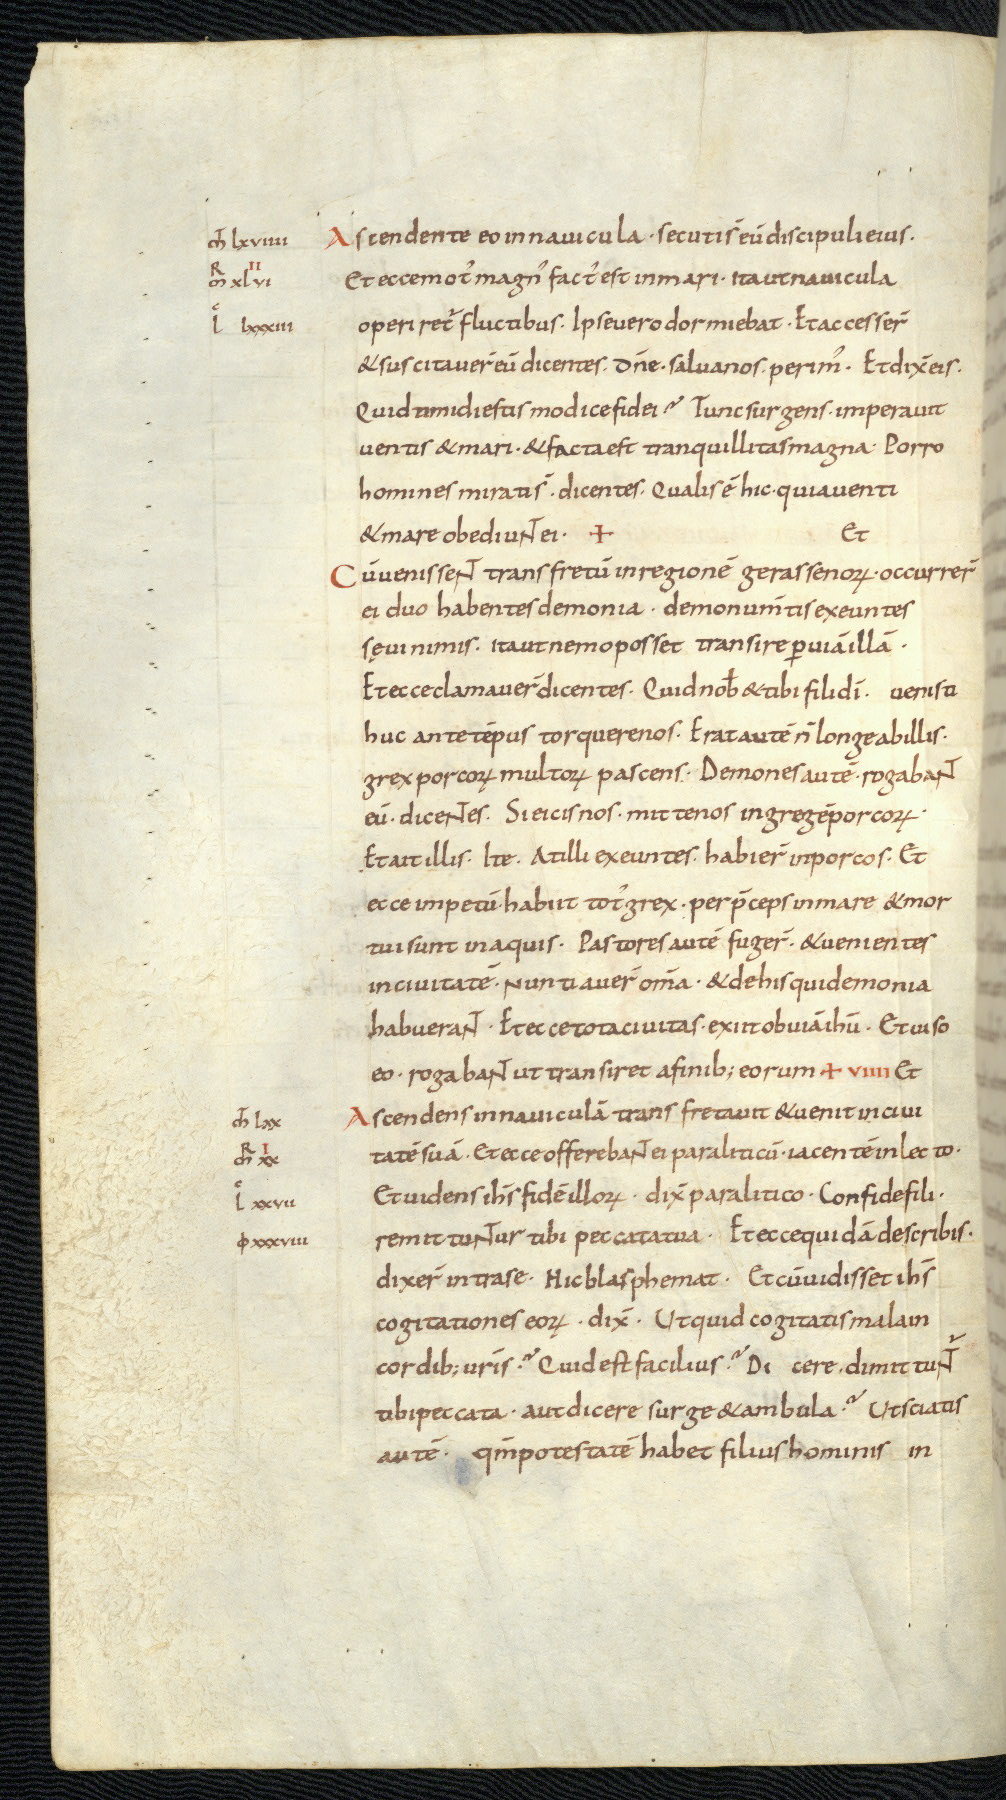 mt̄ lxviiii Ascendente eo in nauicula · secuti s̄ eū discipuli eius ·
mR xlvi II Et ecce mot᾽ magn᾽ fact᾽ est in mari · ita ut nauicula
l lxxxiii operiret᾽ fluctibus · Ipse uero dormiebat · Et accesser̄
& suscitauer̄ eū dicentes · dn̄e · salua nos · perim᾽ · Et dix̄ eis ·
Quid timidi estis modice fidei ? Tunc surgens · imperauit
uentis & mari · & facta est tranquillitas magna · Porro
homines mirati s̄ · dicentes · Qualis ē hic · quia uenti
& mare obediuNT ei · + Et
Cū uenisseNT trans fretū in regionē gerassenoꝝ · occurrer̄
ei duo habentes demonia · de monum̄tis exeuntes
sęui nimis · ita ut nemo posset transire ꝑ uiā illā ·
Et ecce clamauer̄ dicentes · Quid nob̄ & tibi fili dī · uenisti
huc ante tēpus torquere nos · Erat autē n̄ longe ab illis ·
grex porcoꝝ multoꝝ pascens · Demones autē · rogabaNT
eū · diceNTes · Si eicis nos · mitte nos in gregē porcoꝝ ·
Et ait illis · Ite · At illi exeuntes · habier̄ in porcos · Et
ecce impetū habiit tot᾽ grex · per p̄ceps in mare & mor
tui sunt in aquis · Pastores autē fuger̄ · & uenientes
in ciuitatē · nuntiauer̄ om̄a · & de his qui demonia
habueraNT · Et ecce tota ciuitas · exiit obuiā ih̄u · Et uiso
eo · rogabaNT ut transiret a finib; eorum + viiii Et
mt̄ lxx Ascendens in nauiculā trans fretauit & uenit in ciui
mR xx I tatē suā · Et ecce offerebaNT ei paraliticū · iacentē in lecto ·
l xxvii Et uidens ih̄s fidē illoꝝ · dix̄ paralitico · Confide fili ·
φ xxxviii remittuNTur tibi peccata tua · Et ecce quidā de scribis ·
dixer̄ intra se · Hic blasphemat · Et cū uidisset ih̄s
cogitationes eoꝝ · dix̄ · Ut quid cogitatis mala in
cordib; ur̄is ·? Quid est facilius ·? Di cere · dimittuNT᾽
tibi peccata · aut dicere surge & ambula ·? Ut sciatis
autē · qm̄ potestatē habet filius hominis in